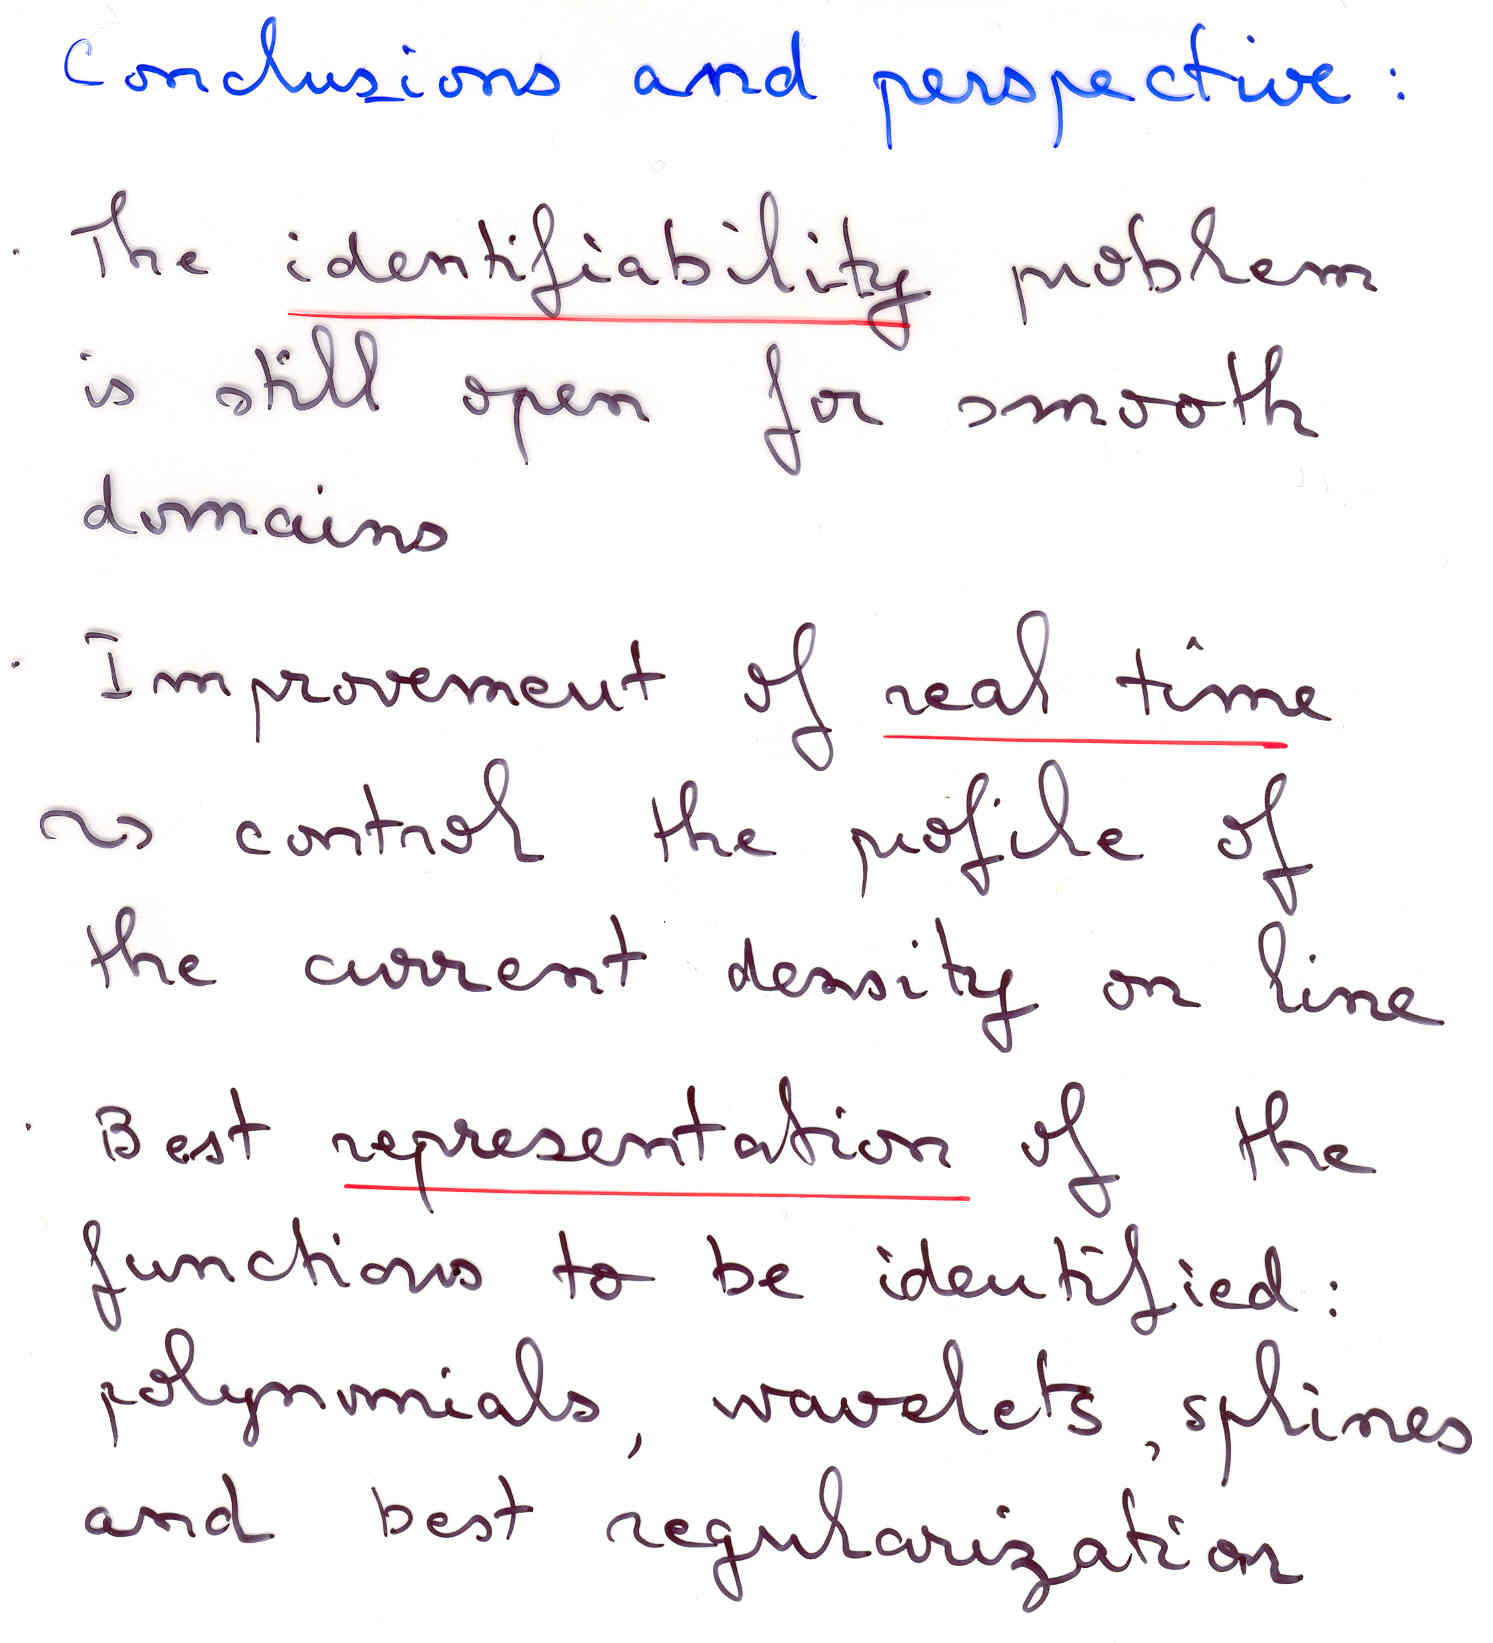 Conclusions and perspective:
· The identifiability problem
is still open for smooth
domains
· Improvement of real time
⤳ control the profile of
the current density on line
· Best representation of the
functions to be identified:
polynomials, wavelets, splines
and best regularization